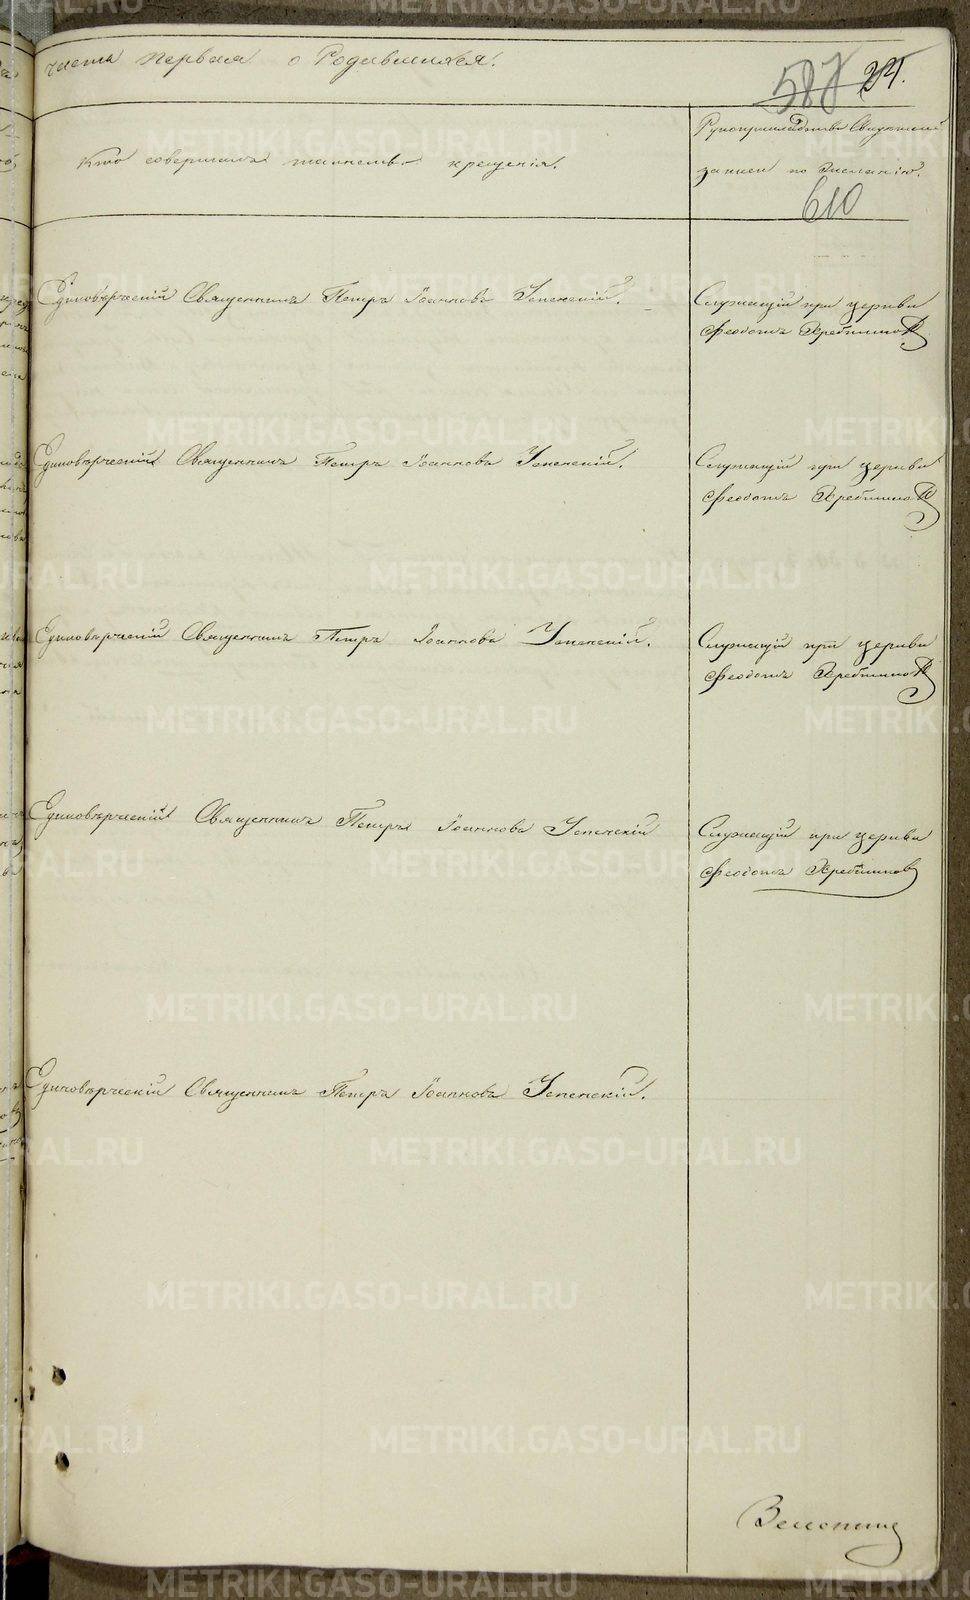 часть первая о Родившихся.
587 24.
Кто совершалъ таинство крещенія.
Рукоприкладство Свидѣтелей
записи по желанію.
610
Единовѣрческій Священникъ Петръ Іоанновъ Успенскій.
Служащій при церкви
Феодотъ
Единовѣрческій Священникъ Петръ Іоанновъ Успенскій.
Служащій при церкви
Феодотъ
Единовѣрческій Священникъ Петръ Іоанновъ Успенскій.
Служащій при церкви
Феодотъ
Единовѣрческій Священникъ Петръ Іоанновъ Успенскій
Служащій при церкви
Феодотъ
Единовѣрческій Священникъ Петръ Іоанновъ Успенскій.
METRIKI.GASO-URAL.RU